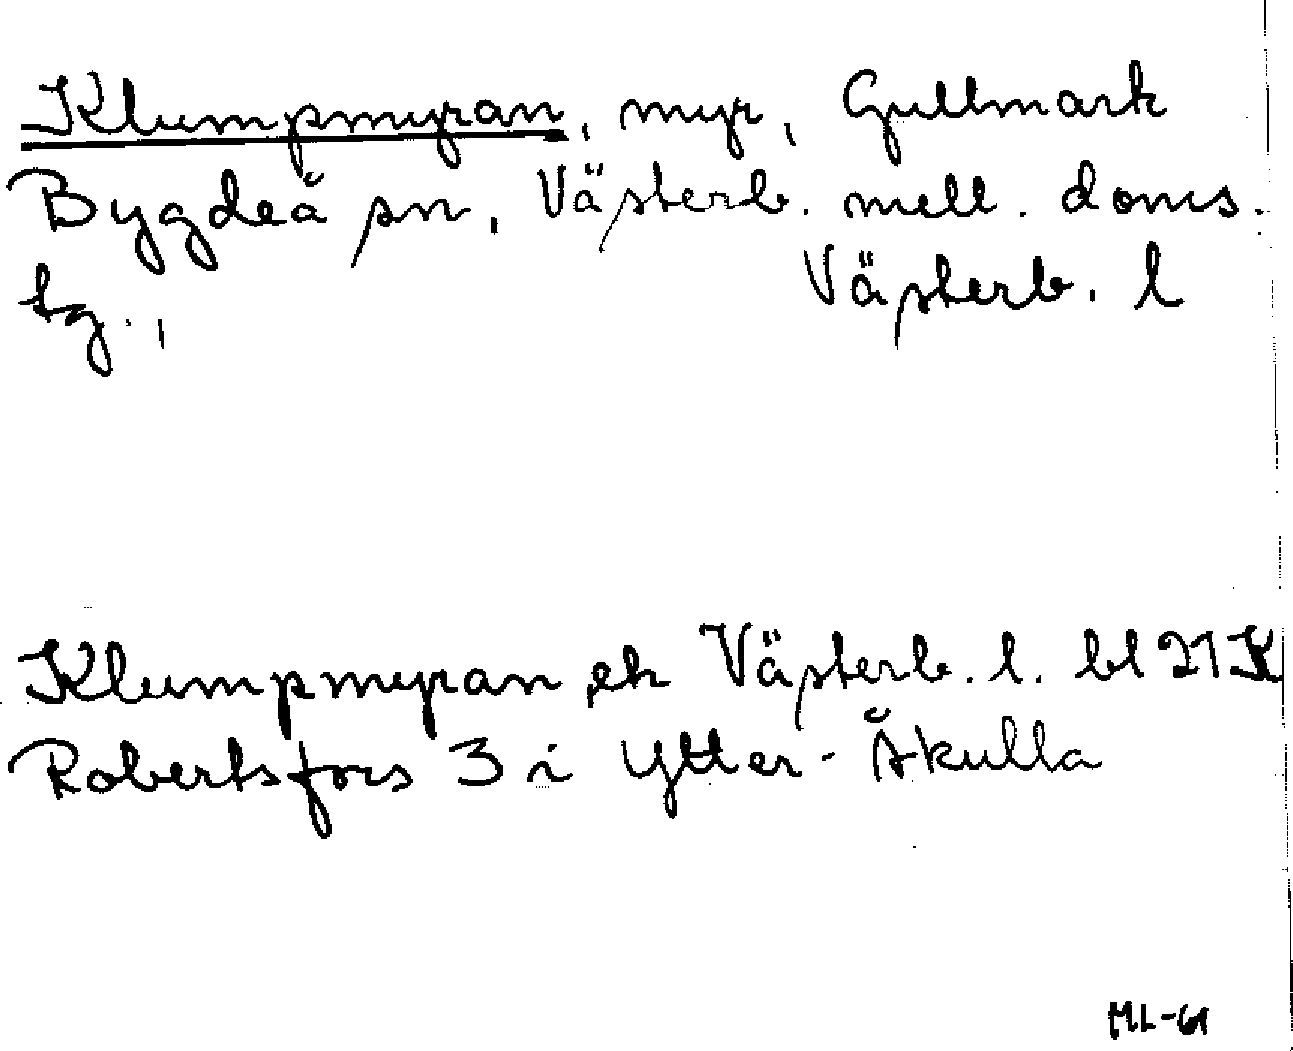 Klumpmyran, myr, Gullmark
Bygdeå sn, Västerb. mell. doms.
tg., Västerb. l
Klumpmyran, ek Västerb. l. bl 21 K
Robertsfors 3 i Ytter-Åkulla
ML-61